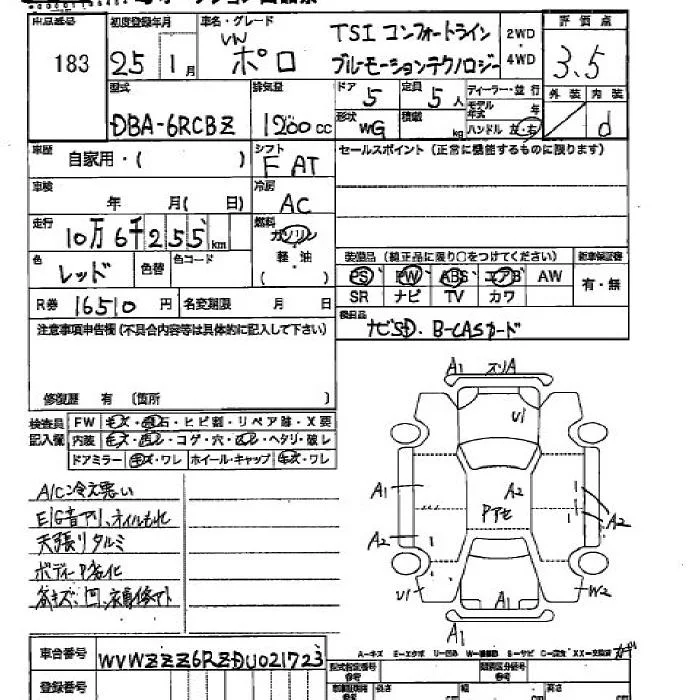 出品番号 初度登録年月 車名・グレード 評価点
183 25 1月 VW ポロ TSI コンフォートライン 2WD 3.5
ブルーモーションテクノロジー 4WD
型式 排気量 ドア 5 定員 5人 ディーラー・並行 外装 内装
DBA-6RCBZ 1200cc 形状 WG 積載 kg モデル年式 年 d
ハンドル 左・右
車歴 自家用・( ) シフト F AT セールスポイント(正常に機能するものに限ります)
車検 年 月( 日) 冷房 AC
走行 10万6千255km 燃料 ガソリン
軽油
( )
装備品(純正品に限り〇をつけてください) 新車保証書
色 レッド 色替 色コード PS PW ABS エアB AW 有・無
SR ナビ TV カワ
R券 16510円 名変期限 月 日
欠品 ナビSD. B-CASカード
注意事項申告欄(不具合内容等は具体的に記入して下さい)
修復歴 有 (箇所 )
検査員記入欄 FW キズ・石・ヒビ割・リペア跡・X要
内装 キズ・・コゲ・穴・・ヘタリ・破レ
ドアミラー キズ・ワレ ホイール・キャップ キズ・ワレ
A/C冷え悪い
E/G音アリ、オイルもれ
天張りタルミ
ボディーP劣化
A1 スリA
U1
A1 A2
Pアセ A2
A2
U1 W2
A1
A1
A-キズ E-エクボ U-凹み W-補修跡 S-サビ C-腐食 XX-交換済
車台番号 WVWZZZ6RZDU021723
型式指定番号 類別区分番号
登録番号 長さ 幅 高さ